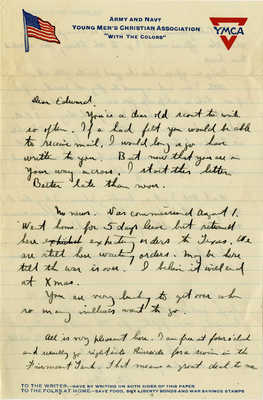 ARMY AND NAVY
YOUNG MEN'S CHRISTIAN ASSOCIATION
"WITH THE COLORS"
YMCA
Dear Edward,
You're a dear old scout to write
so often. If I had felt you would be able
to receive mail, I would long ago have
written to you. But now that you are on
your way across, I start this letter.
Better late than never.
No news. Was commissioned August 1.
Went home for 5 days leave but returned
here expecting orders to Texas. We
are still here waiting orders. May be here
till the war is over. I believe it will end
at Xmas.
You are very lucky to get over when
so many withers want to go.
All is very pleasant here. I am free at four o'clock
and usually go right into Riverside for a swim in the
Fairmont Tank. That means a great deal to me
TO THE WRITER—SAVE BY WRITING ON BOTH SIDES OF THIS PAPER
TO THE FOLKS AT HOME—SAVE FOOD, BUY LIBERTY BONDS AND WAR SAVINGS STAMPS